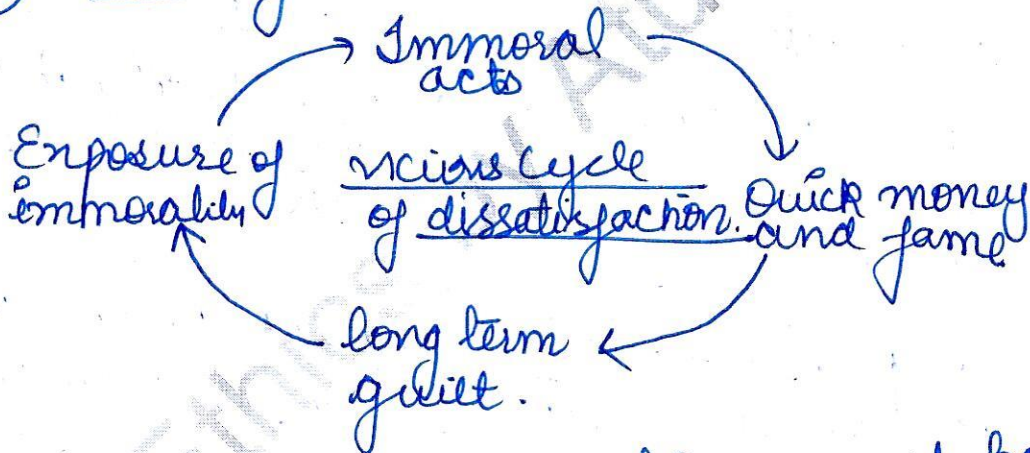 Immoral
acts
Exposure of
immorality
vicious cycle
of dissatisfaction.
Quick money
and fame
long term
guilt.